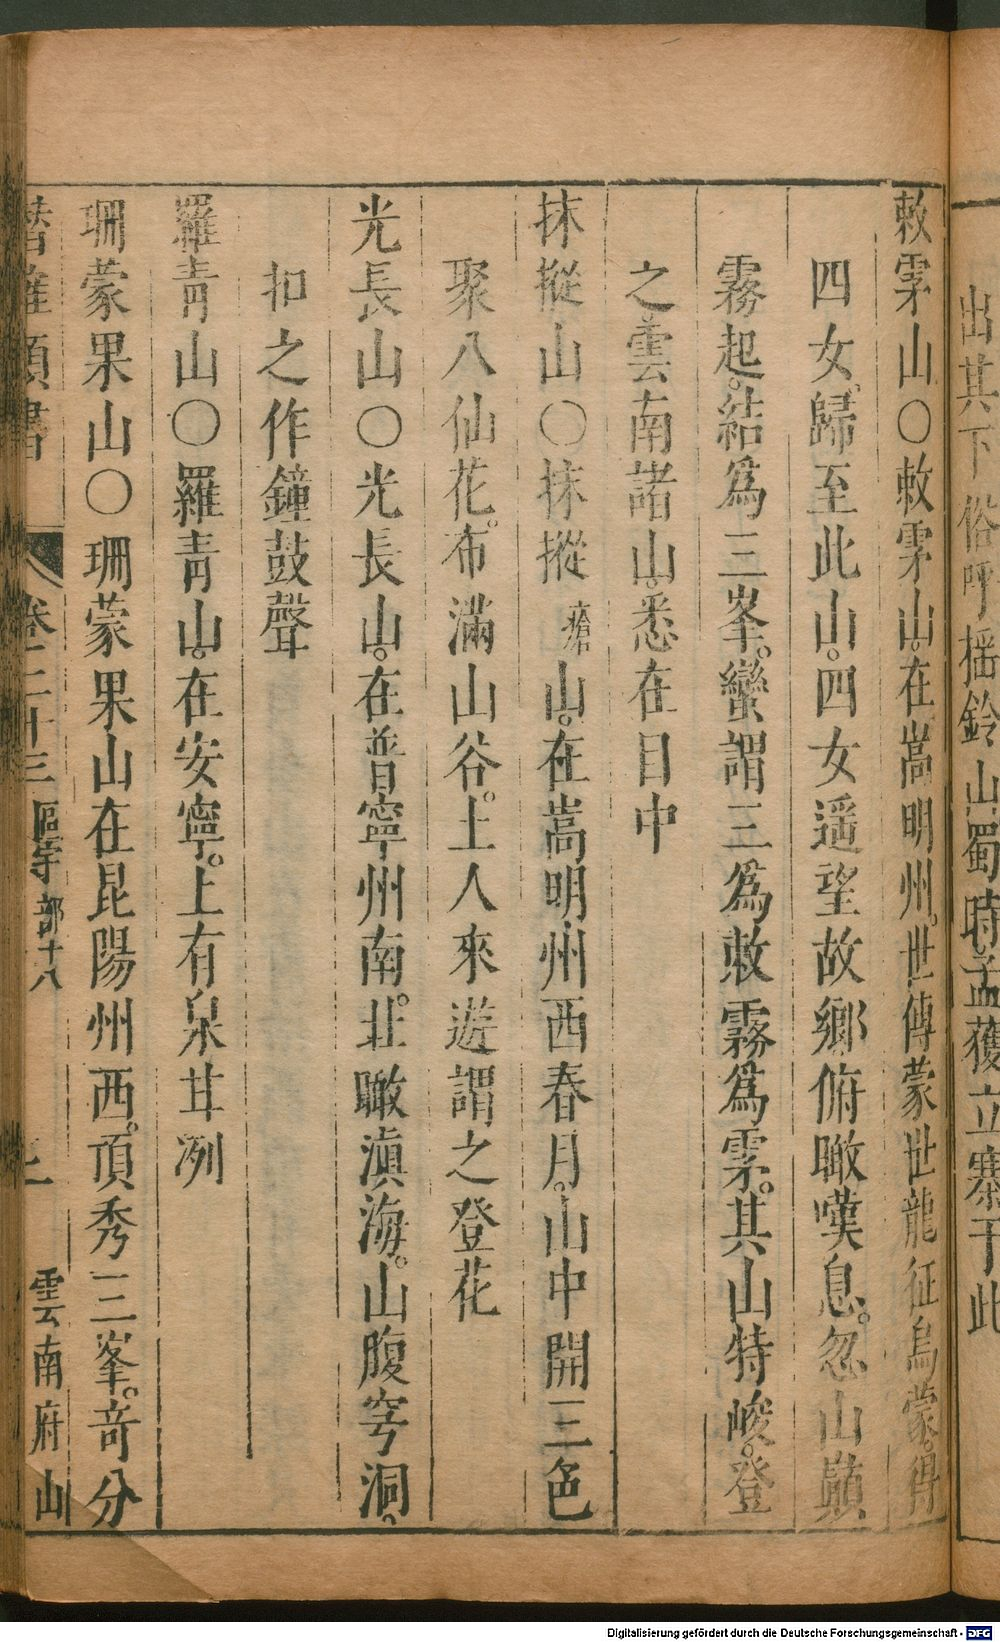 出其下俗呼搖鈴山蜀時孟獲立寨于此
敕雺山○敕雺山。在嵩明州。世傳蒙世龍征烏蒙。得
四女。歸至此山。四女遥望故鄉俯瞰嘆息。忽山巔
霧起。結爲三峯。蠻謂三爲敕霧爲雺。其山特峻。登
之雲南諸山。悉在目中
抹摐山○抹摐瘡山。在嵩明州西春月。山中開三色
聚八仙花。布滿山谷。土人來遊謂之登花
光長山○光長山。在普寧州南。北瞰滇海。山腹穹洞。
扣之作鐘鼓聲
羅青山○羅青山。在安寧。上有泉甘冽
珊蒙果山○珊蒙果山在昆陽州西。頂秀三峯。奇分
卷二十三 部十八 雲南府山
Digitalisierung gefördert durch die Deutsche Forschungsgemeinschaft - DFG